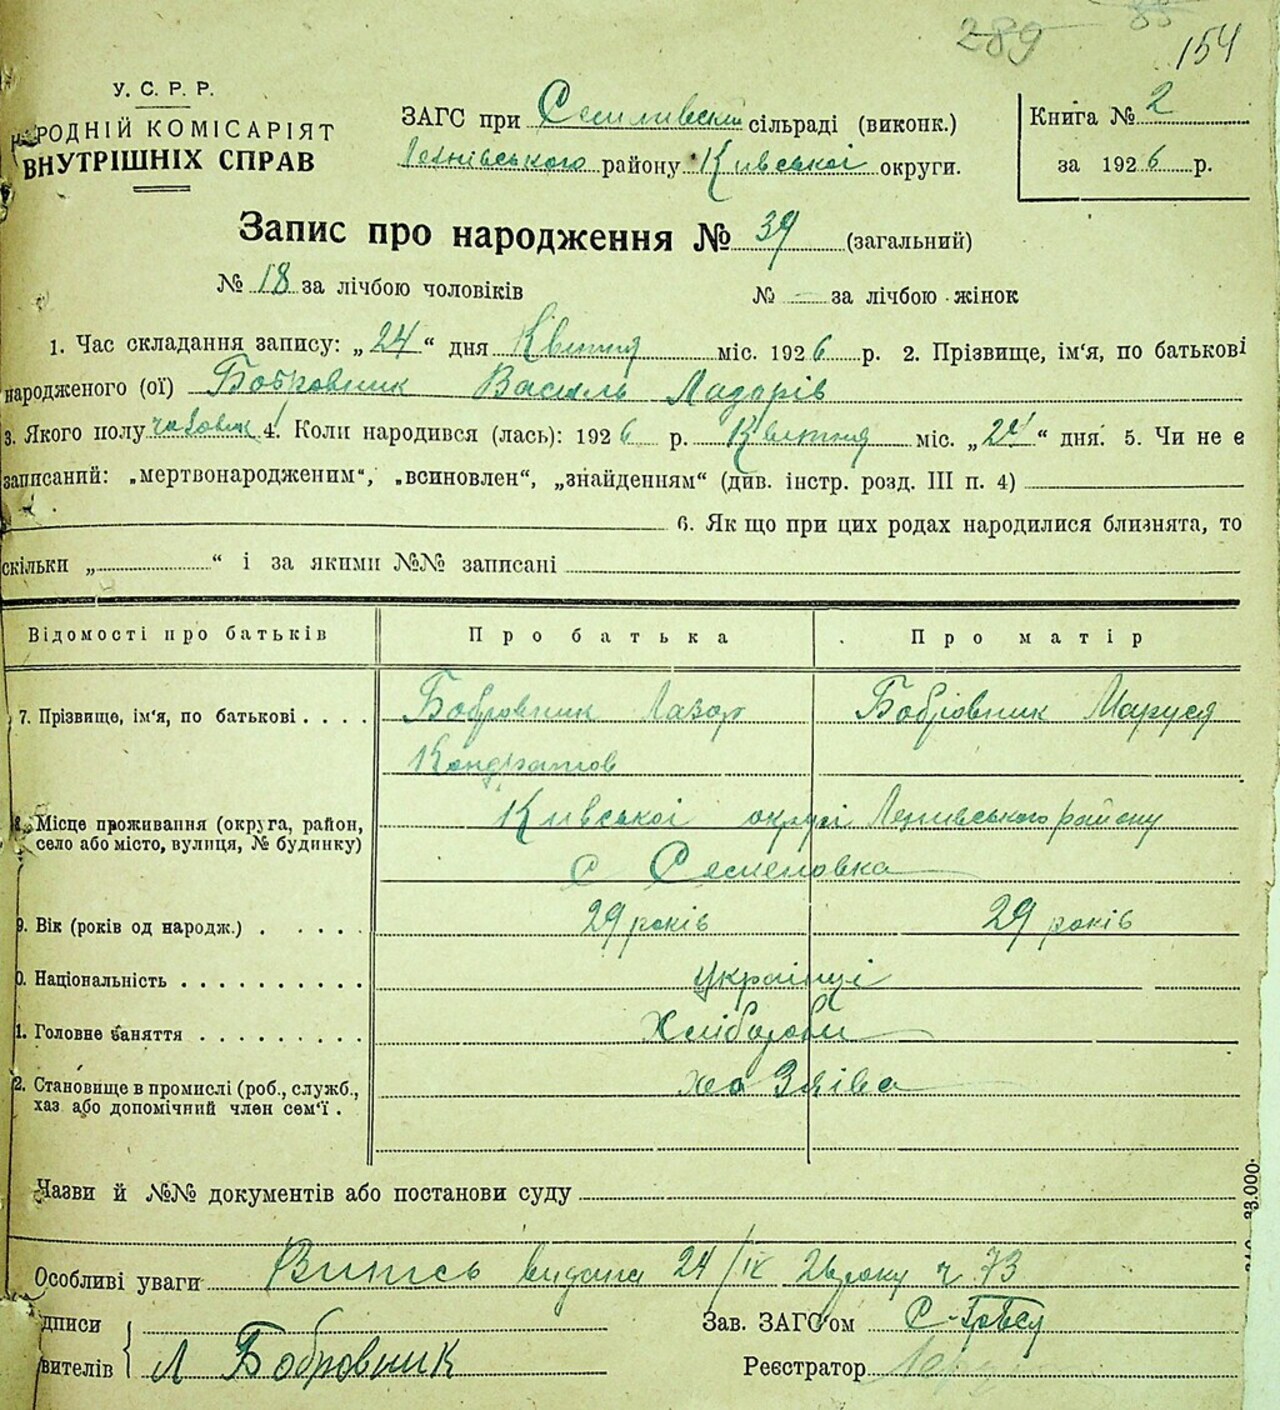 289 88
154
У. С. Р. Р.
НАРОДНІЙ КОМІСАРІЯТ
ВНУТРІШНІХ СПРАВ
ЗАГС при сільраді (виконк.)
району Київської округи.
Книга № 2
за 1926 р.
Запис про народження № 39 (загальний)
№ 18 за лічбою чоловіків № — за лічбою жінок
1. Час складання запису: „24“ дня Квітня міс. 1926 р. 2. Прізвище, ім'я, по батькові
народженого (ої) Бобровник Василь Лазорів
3. Якого полу чоловик 4. Коли народився (лась): 1926 р. Квітня міс. „24“ дня. 5. Чи не є
записаний: „мертвонародженим“, „всиновлен“, „знайденням“ (див. інстр. розд. III п. 4)
6. Як що при цих родах народилися близнята, то
скільки „ “ і за якими №№ записані
Відомості про батьків Про батька Про матір
7. Прізвище, ім'я, по батькові . . . . Бобровник Лазор Бобрівник Маруся
Кондратов
8. Місце проживання (округа, район, Київської округи району
село або місто, вулиця, № будинку) с Семеновка
9. Вік (років од народж.) . . . . . 29 років 29 років
0. Національність . . . . . . . . . . Українці
1. Головне заняття . . . . . . . . . Хлібороби
2. Становище в промислі (роб., служб., хазяіва
хаз або допомічний член сем'ї .
Назви й №№ документів або постанови суду
23.000.
Особливі уваги Випись видана 24/IX 26 року ч 73
дписи Зав. ЗАГС'ом
вителів Л Бобровник Реєстратор